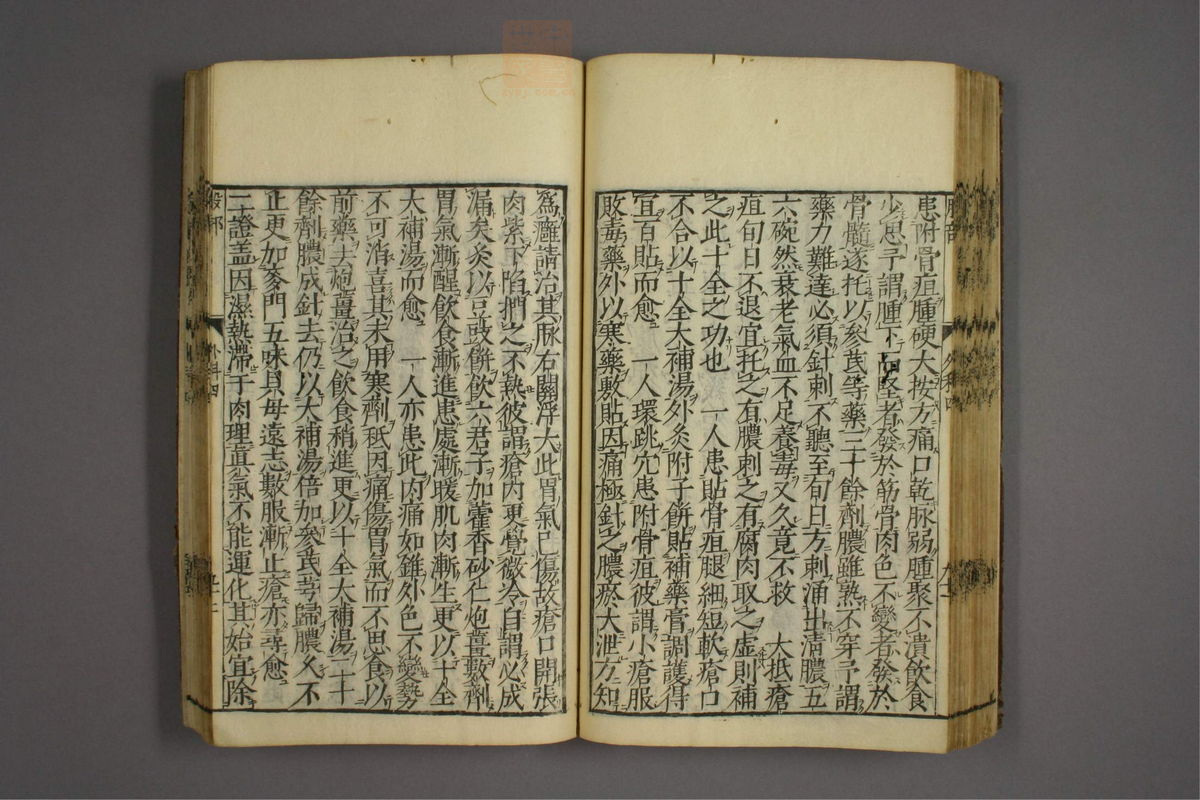 患附骨疽腫硬大按方痛口乾脉弱腫聚不潰飲食
少思予謂腫下堅者發於筋骨肉色不變者發於
骨髓遂托以參芪等藥三十餘劑膿雖熟不穿予謂
藥力難達必須針刺不聽至旬日方刺涌出清膿五
六碗然衰老氣血不足養毒又久竟不救 大抵瘡
疽旬日不退宜托之有膿刺之有腐肉取之虚則補
之此十全之功也 一人患貼骨疽腿細短軟瘡口
不合以十全大補湯外灸附子餅貼補藥膏調護得
宜百貼而愈 一人環跳穴患附骨疽彼謂小瘡服
敗毒藥外以寒藥敷貼因痛極針之膿瘀大泄方知
為癰請治其脉右關浮大此胃氣已傷故瘡口開張
肉紫下陷捫之不熱彼謂瘡內更覺微冷自謂必成
漏矣灸以豆豉餅飲六君子加藿香砂仁炮薑數劑
胃氣漸醒飲食漸進患處漸暖肌肉漸生更以十全
大補湯而愈 一人亦患此內痛如錐外色不變勢
不可消喜其未用寒劑秪因痛傷胃氣而不思食以
前藥去炮薑治之飲食稍進更以十全大補湯二十
餘劑膿成針去仍以大補湯倍加參芪芎歸膿久不
止更加麥門五味貝母遠志數服漸止瘡亦尋愈
二十證盖因濕熱滯于肉理真氣不能運化其始宜除
外科四